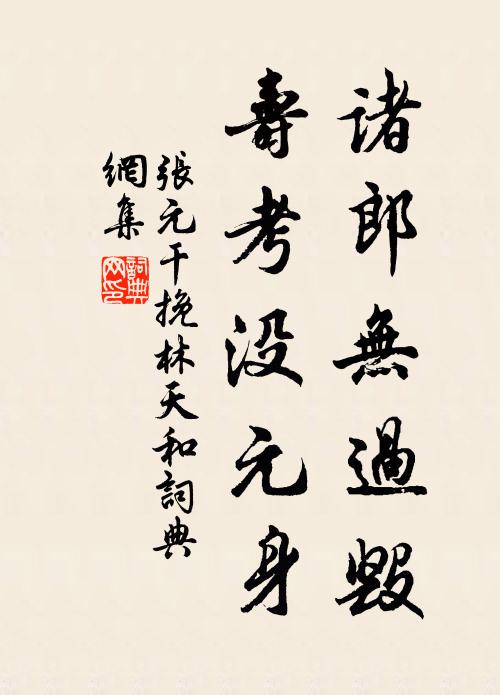 諸郎無過毀
壽考没元身
張元干挽林天和詞典
網集
詞典網印